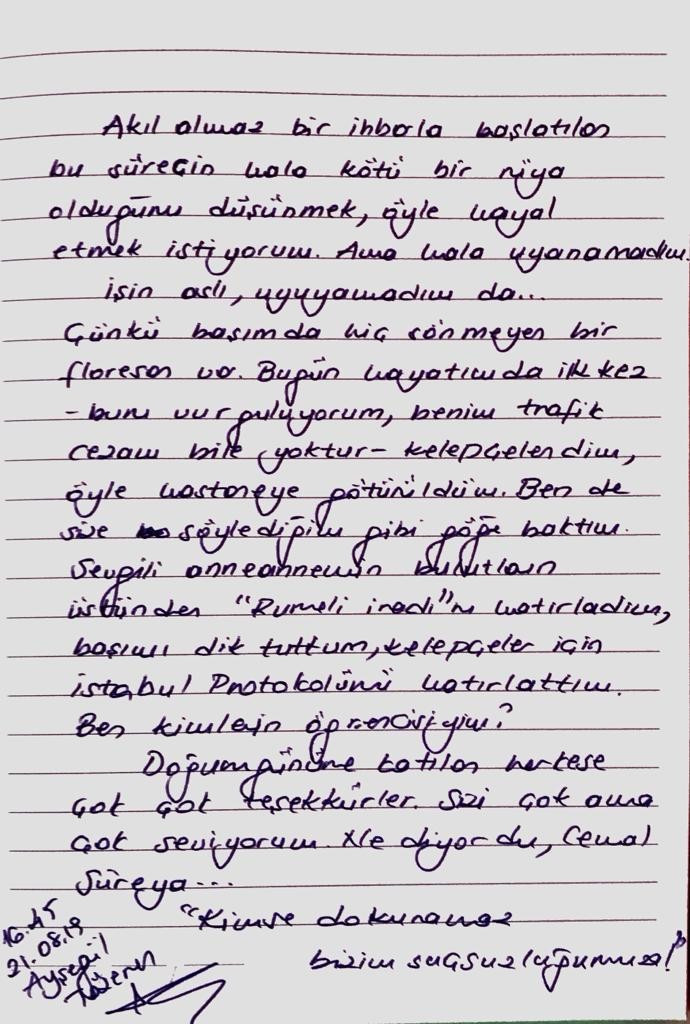 Akıl almaz bir ihbarla başlatılan
bu sürecin hala kötü bir rüya
olduğunu düşünmek, öyle hayal
etmek istiyorum. Ama hala uyanamadım.
işin aslı, uyuyamadım da...
Çünkü başımda hiç sönmeyen bir
floresan var. Bugün hayatımda ilk kez
- bunu vurguluyorum, benim trafik
cezam bile yoktur - kelepçelendim,
öyle hastaneye götürüldüm. Ben de
size söylediğim gibi göğe baktım.
Sevgili anneannemin bulutların
üstünden "Rumeli inadı"nı hatırladım,
başımı dik tuttum, kelepçeler için
istabul Protokolünü hatırlattım.
Ben kimlerin öğrencisiyim?
Doğumgünüme katılan herkese
çok çok teşekkürler. Sizi çok ama
çok seviyorum. Ne diyordu, Cemal
Süreya...
"Kimse dokunamaz
bizim suçsuzluğumuza!"
16.45
21.08.19
Ayşegül